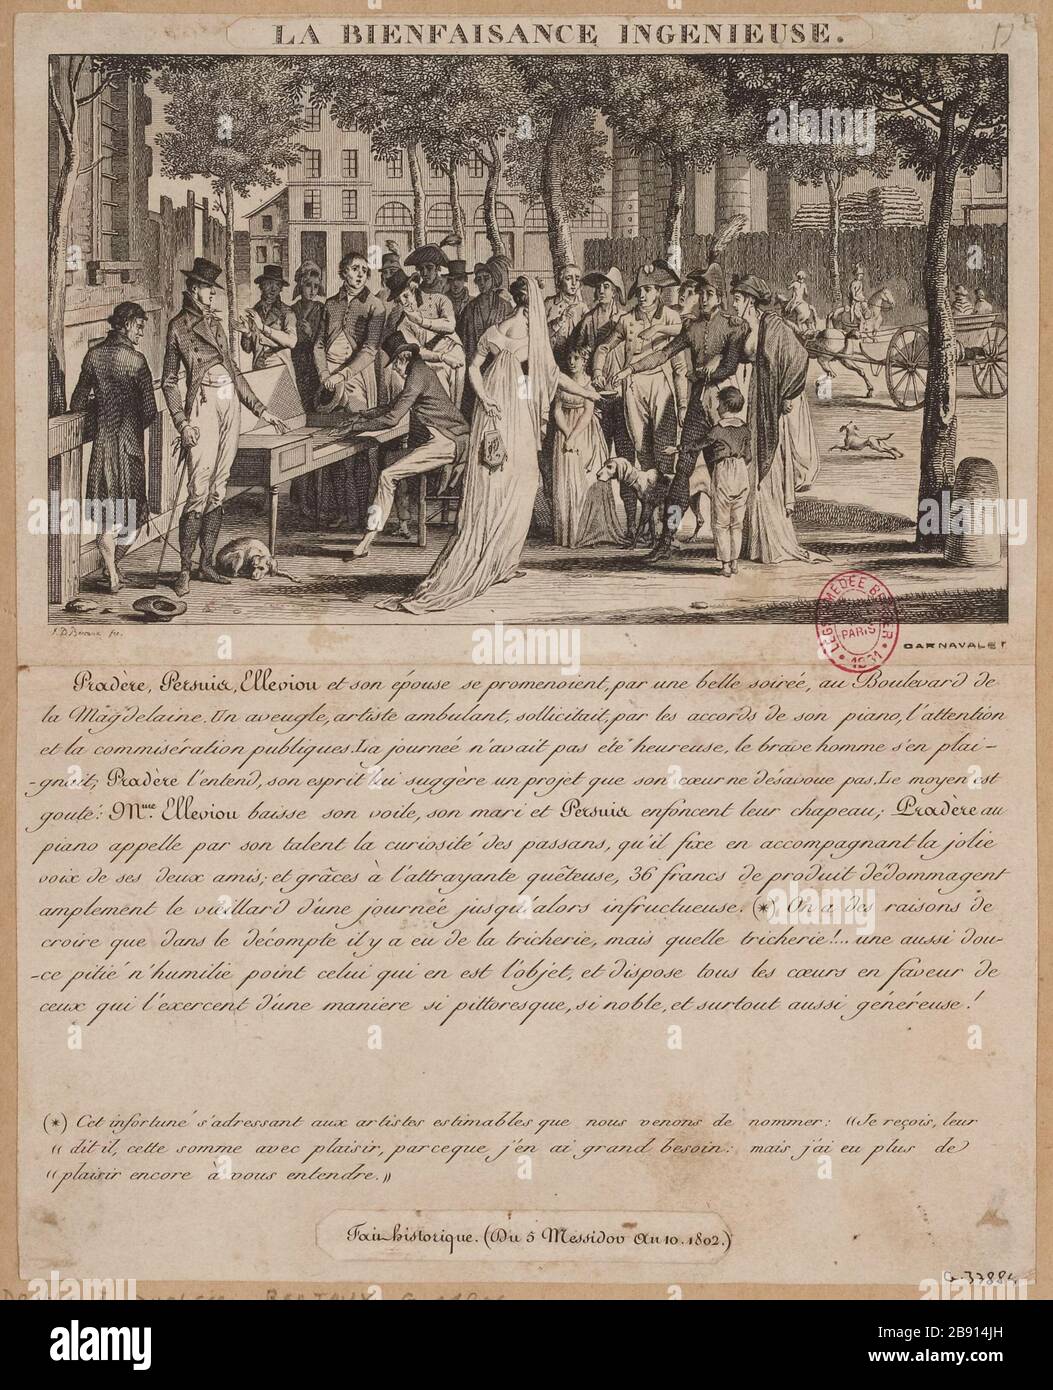 LA BIENFAISANCE INGENIEUSE.
CARNAVALET
LEGS AMEDEE BERGER
PARIS
1881
Pradère, Persuis, Elleviou et son épouse se promenoient, par une belle soirée, au Boulevard de
la Magdelaine. Un aveugle, artiste ambulant, sollicitait, par les accords de son piano, l'attention
et la commisération publiques. La journée n'avait pas été heureuse, le brave homme s'en plai-
-gnait; Pradère l'entend, son esprit lui suggère un projet que son cœur ne désavoue pas. Le moyen est
gouté: Mme. Elleviou baisse son voile, son mari et Persuis enfoncent leur chapeau; Pradère au
piano appelle par son talent la curiosité des passans, qu'il fixe en accompagnant la jolie
voix de ses deux amis; et grâces à l'attrayante quêteuse, 36 francs de produit dédommagent
amplement le vieillard d'une journée jusqu'alors infructueuse. (*) On a des raisons de
croire que dans le décompte il y a eu de la tricherie, mais quelle tricherie!... une aussi dou-
-ce pitié n'humilie point celui qui en est l'objet, et dispose tous les cœurs en faveur de
ceux qui l'exercent d'une maniere si pittoresque, si noble, et surtout aussi généreuse!
(*) Cet infortuné s'adressant aux artistes estimables que nous venons de nommer: «Je reçois, leur
« dit il, cette somme avec plaisir, parceque j'en ai grand besoin: mais j'ai eu plus de
« plaisir encore à vous entendre.»
Fait historique. (Du 5 Messidor An 10. 1802.)
G. 37884
alamy
Image ID: 2B914JH
www.alamy.com